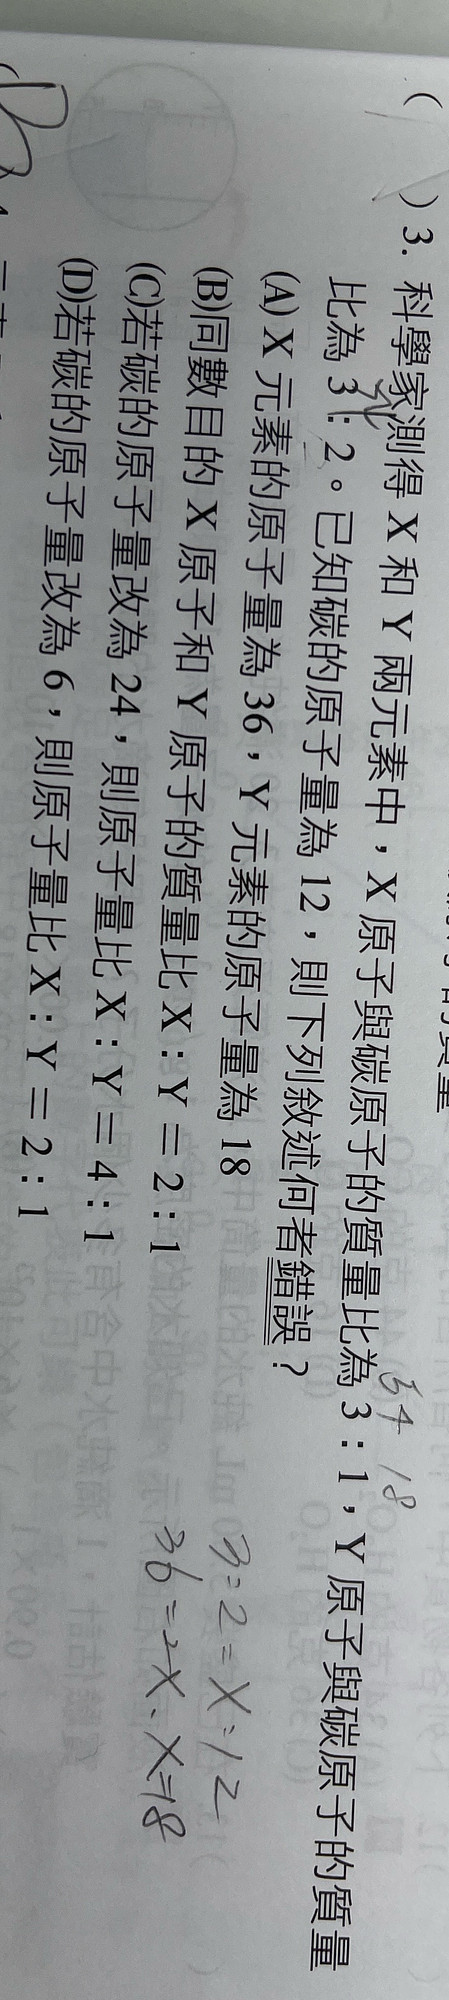 ( )3. 科學家測得 X 和 Y 兩元素中，X 原子與碳原子的質量比為 3：1，Y 原子與碳原子的質量
54 18
比為 3：2。已知碳的原子量為 12，則下列敘述何者錯誤？
(A) X 元素的原子量為 36，Y 元素的原子量為 18
(B)同數目的 X 原子和 Y 原子的質量比 X：Y＝2：1
(C)若碳的原子量改為 24，則原子量比 X：Y＝4：1
(D)若碳的原子量改為 6，則原子量比 X：Y＝2：1
3:2=X:12
36=2X、X=18